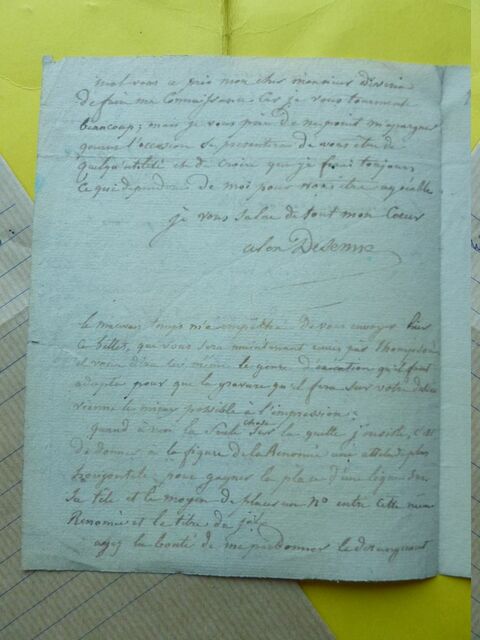 mal vous ce prix mon cher monsieur
De faire ma Connaissance Car je vous tourmente
beaucoup; mais je vous prie De ne point m'epargner
quand l'occasion se presentera de vous etre de
quelqu'utilité et de Croire que je ferai toujours
Ce qui dependra De moi pour vous être agréable
je vous salue de tout mon Coeur
Le mauvais temps m'a empêché De vous envoyer hier
Ce billet, que vous sera maintenant remis par
et voir d'être lui même le genre d'execution qu'il faut
adopter pour que la gravure qu'il fera sur votre dessin
vienne le mieux possible à l'impression.
quand à moi la seule chose sur la quelle j'insiste, c'est
de donner à la figure de la Renomée une attitude plus
horizontale, pour gagner la place d'une ligne sur
Sa tete et le moyen de placer un No entre cette même
Renomée et le titre du
ayez la bonté de me pardonner le derangement